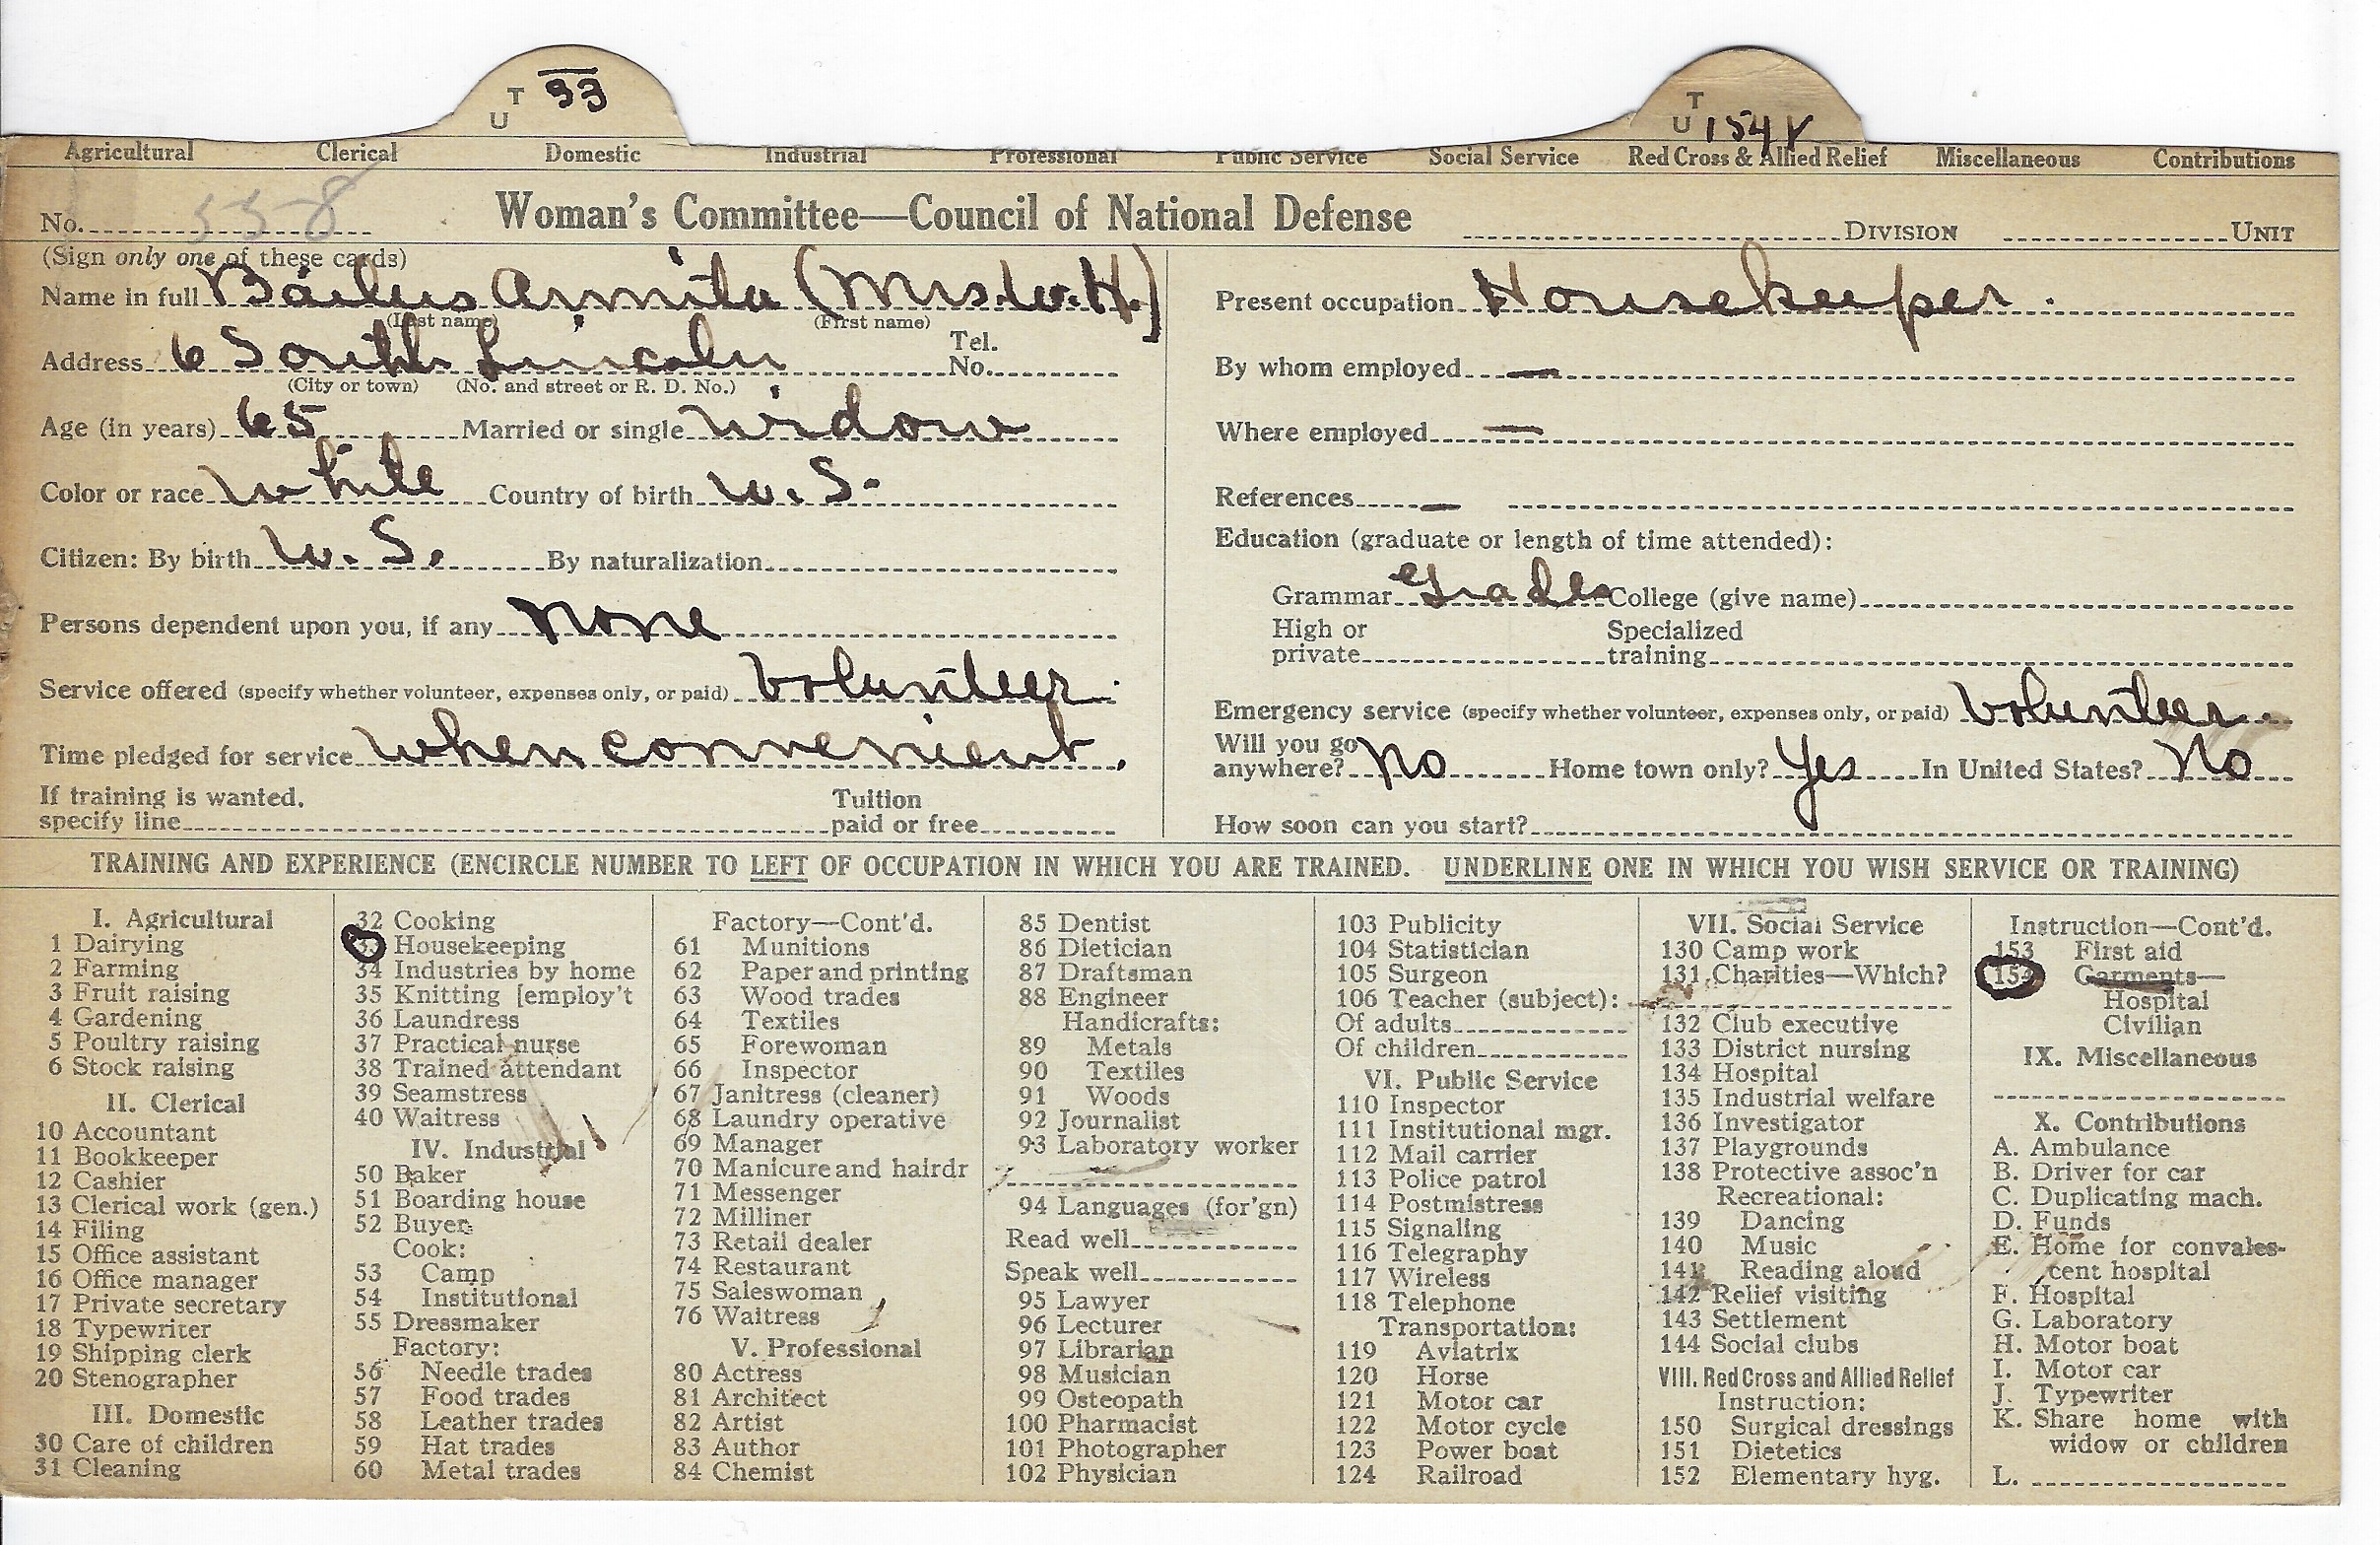 T 33
U
T
U 154 V
Agricultural Clerical Domestic Industrial Professional Public Service Social Service Red Cross & Allied Relief Miscellaneous Contributions
No. 558 Woman's Committee—Council of National Defense DIVISION UNIT
(Sign only one of these cards)
Name in full Armita (Mrs. W. H.)
(Last name) (First name)
Address 6 South Lincoln Tel. No.
(City or town) (No. and street or R. D. No.)
Age (in years) 65 Married or single Widow
Color or race White Country of birth U. S.
Citizen: By birth U. S. By naturalization
Persons dependent upon you, if any none
Service offered (specify whether volunteer, expenses only, or paid) Volunteer.
Time pledged for service when convenient.
If training is wanted, specify line Tuition paid or free
Present occupation Housekeeper.
By whom employed —
Where employed —
References —
Education (graduate or length of time attended):
Grammar Grades College (give name)
High or private Specialized training
Emergency service (specify whether volunteer, expenses only, or paid) Volunteer.
Will you go anywhere? No Home town only? Yes In United States? No
How soon can you start?
TRAINING AND EXPERIENCE (ENCIRCLE NUMBER TO LEFT OF OCCUPATION IN WHICH YOU ARE TRAINED. UNDERLINE ONE IN WHICH YOU WISH SERVICE OR TRAINING)
I. Agricultural
1 Dairying
2 Farming
3 Fruit raising
4 Gardening
5 Poultry raising
6 Stock raising
II. Clerical
10 Accountant
11 Bookkeeper
12 Cashier
13 Clerical work (gen.)
14 Filing
15 Office assistant
16 Office manager
17 Private secretary
18 Typewriter
19 Shipping clerk
20 Stenographer
III. Domestic
30 Care of children
31 Cleaning
32 Cooking
33 Housekeeping
34 Industries by home
35 Knitting [employ't
36 Laundress
37 Practical nurse
38 Trained attendant
39 Seamstress
40 Waitress
IV. Industrial
50 Baker
51 Boarding house
52 Buyer
Cook:
53 Camp
54 Institutional
55 Dressmaker
Factory:
56 Needle trades
57 Food trades
58 Leather trades
59 Hat trades
60 Metal trades
Factory—Cont'd.
61 Munitions
62 Paper and printing
63 Wood trades
64 Textiles
65 Forewoman
66 Inspector
67 Janitress (cleaner)
68 Laundry operative
69 Manager
70 Manicure and hairdr
71 Messenger
72 Milliner
73 Retail dealer
74 Restaurant
75 Saleswoman
76 Waitress
V. Professional
80 Actress
81 Architect
82 Artist
83 Author
84 Chemist
85 Dentist
86 Dietician
87 Draftsman
88 Engineer
Handicrafts:
89 Metals
90 Textiles
91 Woods
92 Journalist
93 Laboratory worker
94 Languages (for'gn)
Read well
Speak well
95 Lawyer
96 Lecturer
97 Librarian
98 Musician
99 Osteopath
100 Pharmacist
101 Photographer
102 Physician
103 Publicity
104 Statistician
105 Surgeon
106 Teacher (subject):
Of adults
Of children
VI. Public Service
110 Inspector
111 Institutional mgr.
112 Mail carrier
113 Police patrol
114 Postmistress
115 Signaling
116 Telegraphy
117 Wireless
118 Telephone
Transportation:
119 Aviatrix
120 Horse
121 Motor car
122 Motor cycle
123 Power boat
124 Railroad
VII. Social Service
130 Camp work
131 Charities—Which?
132 Club executive
133 District nursing
134 Hospital
135 Industrial welfare
136 Investigator
137 Playgrounds
138 Protective assoc'n
Recreational:
139 Dancing
140 Music
141 Reading aloud
142 Relief visiting
143 Settlement
144 Social clubs
VIII. Red Cross and Allied Relief
Instruction:
150 Surgical dressings
151 Dietetics
152 Elementary hyg.
Instruction—Cont'd.
153 First aid
154 Garments—
Hospital
Civilian
IX. Miscellaneous
X. Contributions
A. Ambulance
B. Driver for car
C. Duplicating mach.
D. Funds
E. Home for convales-
cent hospital
F. Hospital
G. Laboratory
H. Motor boat
I. Motor car
J. Typewriter
K. Share home with
widow or children
L.